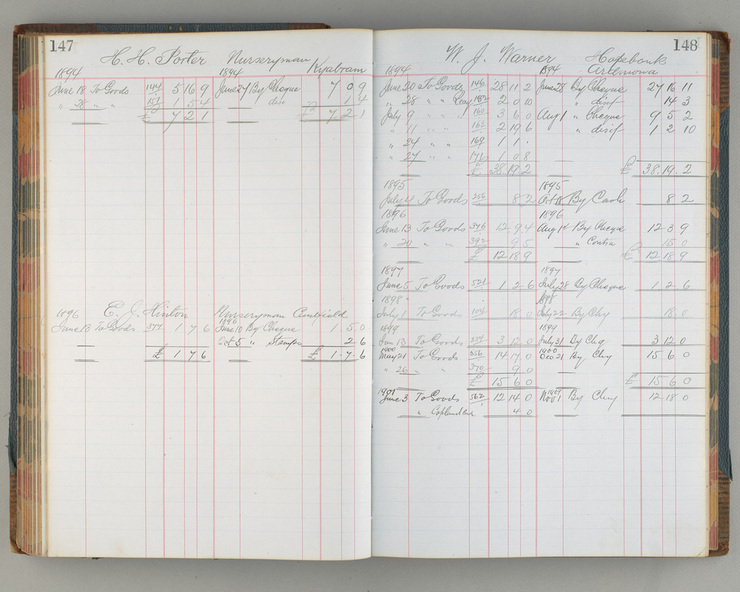 147
H. H. Porter Nurseryman Kyabram
1894 1894
June 18 To Goods 144 5 16 9 June 27 By Cheque 7 0 9
" 28 " " 153 1 5 4 " disc 1 4
£ 7 2 1 £ 7 2 1
1896 E. J. Hinton Nurseryman
June 13 To Goods 377 1 7 6 June 18 By Cheque 1 5 0
Oct 5 " Stamps 2 6
£ 1 7 6 £ 1 7 6
148
W. J. Warner
1894 1894
June 20 To Goods 146 28 11 2 June 28 By Cheque 27 16 11
" 28 " " 2 0 10 " disct 14 3
July 9 " " 3 6 0 Aug 1 " Cheque 9 5 2
" 11 " " 2 19 6 " disct 1 2 10
" 24 " " 1 1
" 27 " " 1 0 8
£ 38 19 2 £ 38 19 2
1895 1895
July 4 To Goods 8 2 Oct By Cash 8 2
1896 1896
June 13 To Goods 376 12 9 4 Aug 14 By Cheque 12 3 9
" 20 " " 392 9 5 " Contra 15 0
£ 12 18 9 £ 12 18 9
1897 1897
June 5 To Goods 1 2 6 July 28 By Cheque 1 2 6
1898 1898
July 1 To Goods 18 0 July 22 By Chq 18 0
1899 1899
To Goods 3 12 0 July 31 By Chq 3 12 0
1900 1900
May 21 To Goods 14 17 0 Dec 21 By Chq 15 6 0
" 26 " " 9 0
£ 15 6 0 £ 15 6 0
1901 1901
June 3 To Goods 562 12 14 0 Nov 1 By Chq 12 18 0
" 4 0